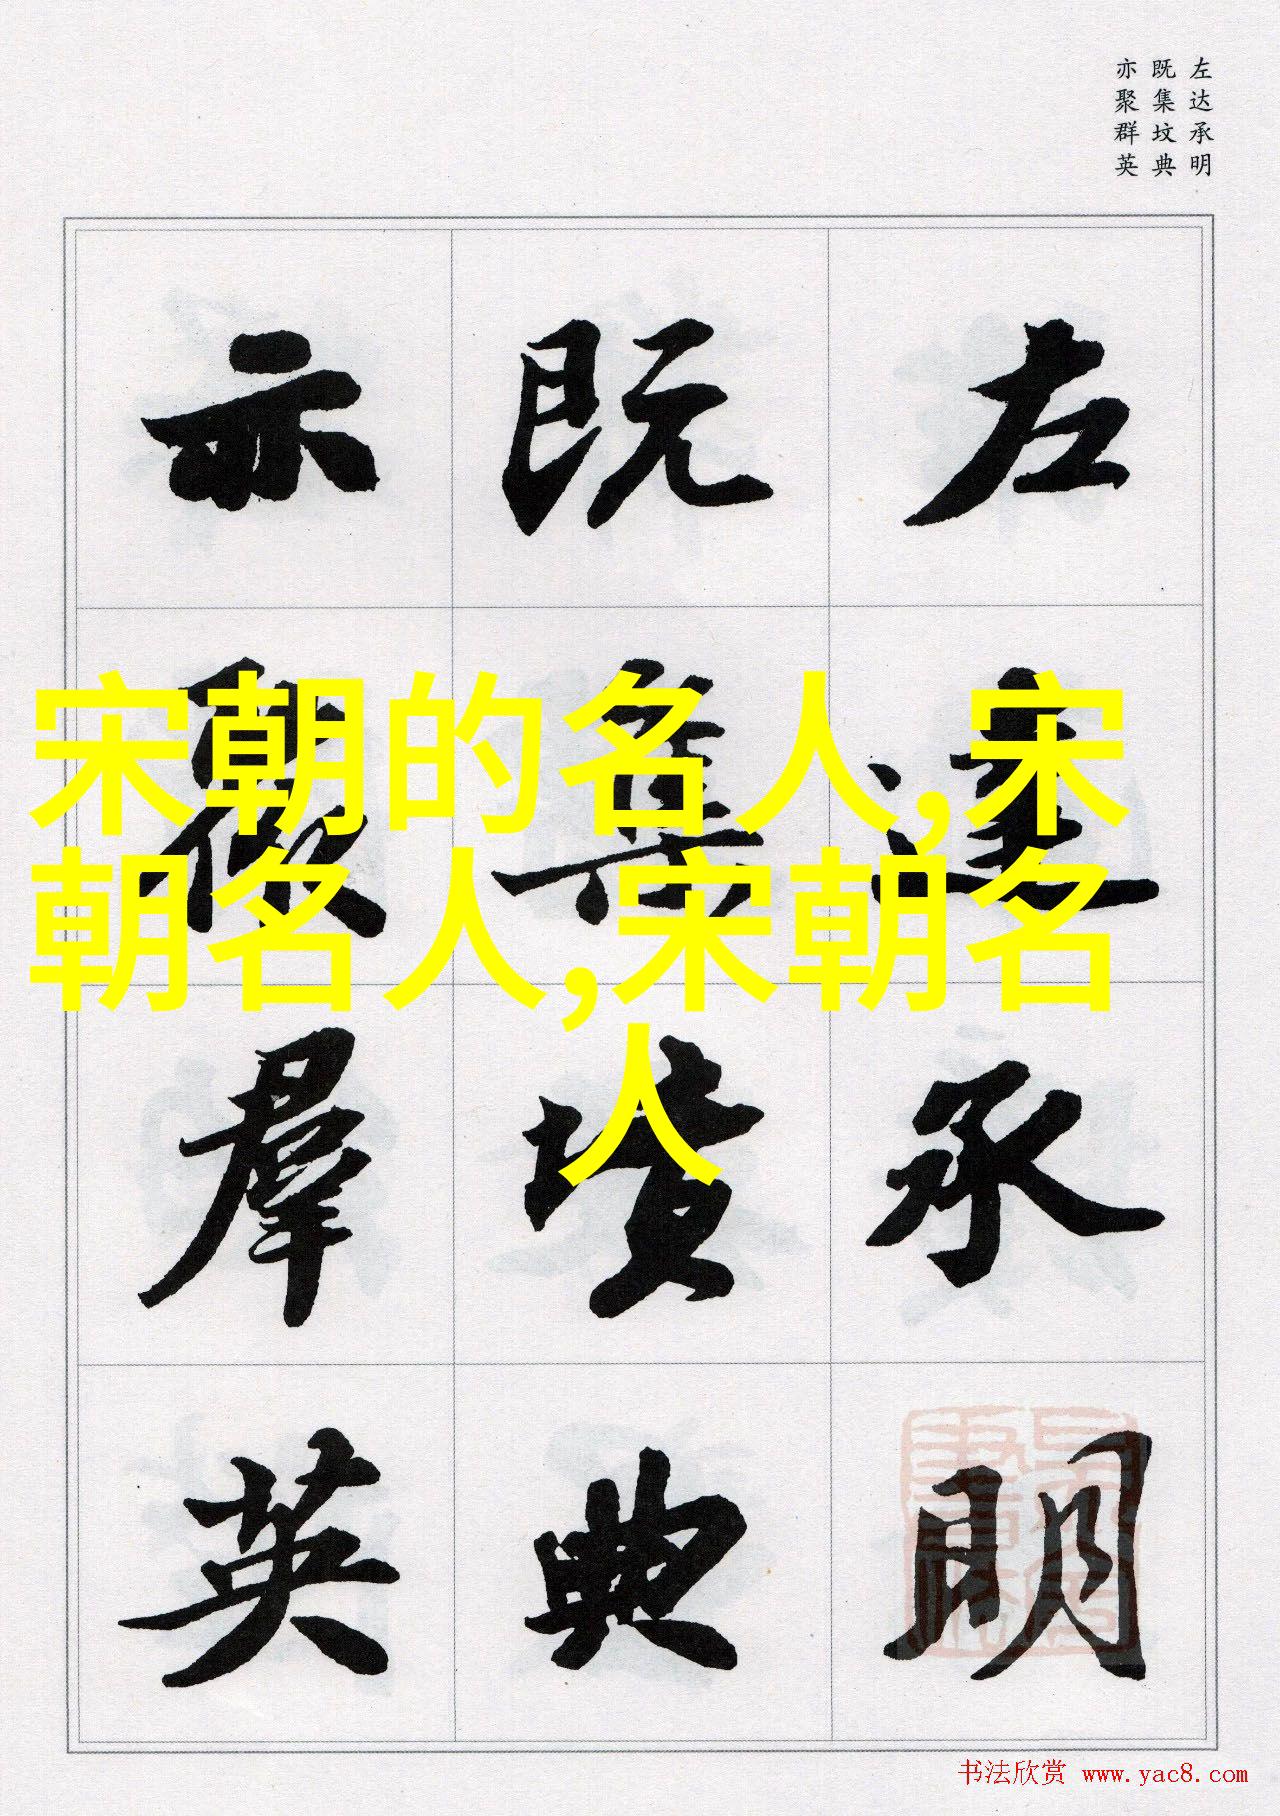 左达承明
既集坟典
亦聚群英
左達承明
既集墳典
亦聚羣英
宋朝的名人,宋
朝名人,宋朝名
人
书法欣赏 www.yac8.com